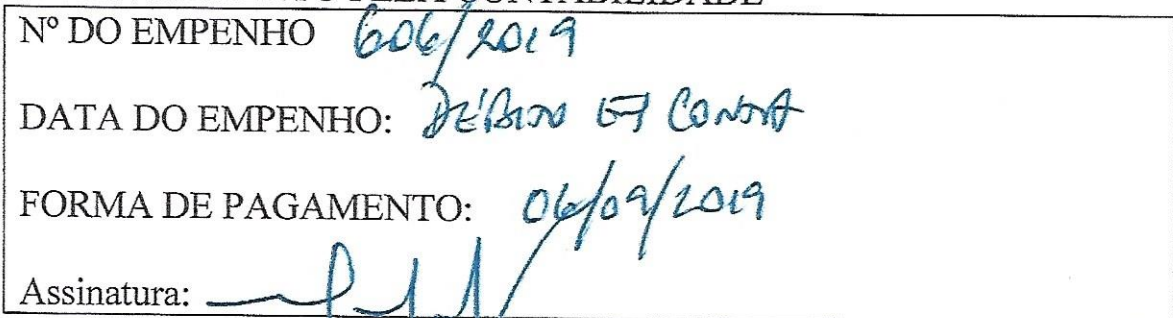 PELA CONTABILIDADE
Nº DO EMPENHO 606/2019
DATA DO EMPENHO: DÉBITO EM CONTA
FORMA DE PAGAMENTO: 06/09/2019
Assinatura: